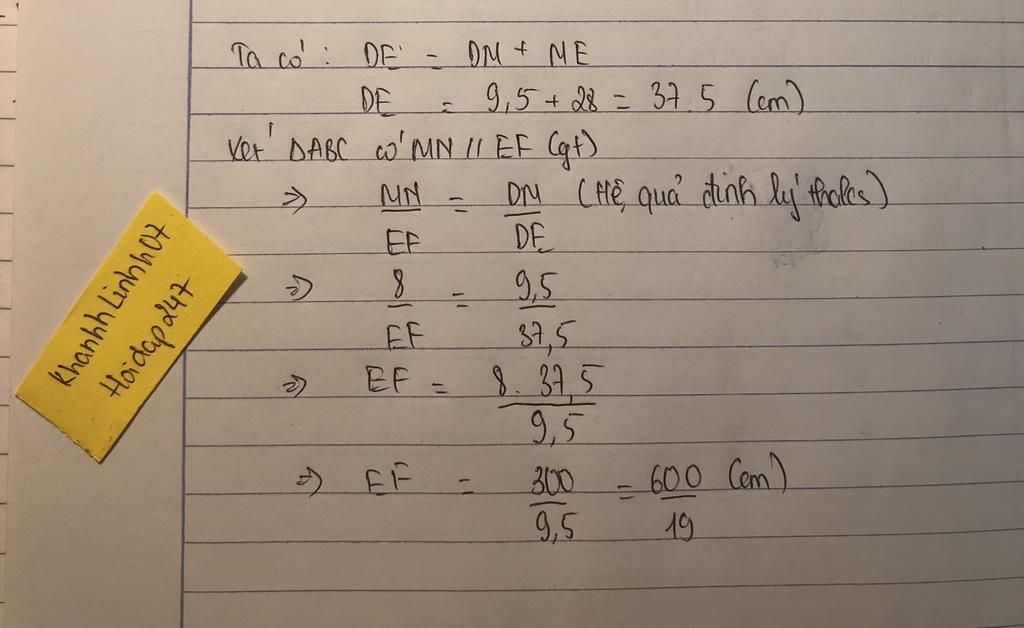 Ta có: DE = DM + ME
DE = 9,5 + 28 = 37.5 (cm)
Xét DABC có MN // EF (gt)
=> MN/EF = DM/DE (Hệ quả định lý thales)
=> 8/EF = 9,5/37,5
=> EF = 8.37,5/9,5
=> EF = 300/9,5 = 600/19 (cm)
KhanhhLinhh07
Hoidap247